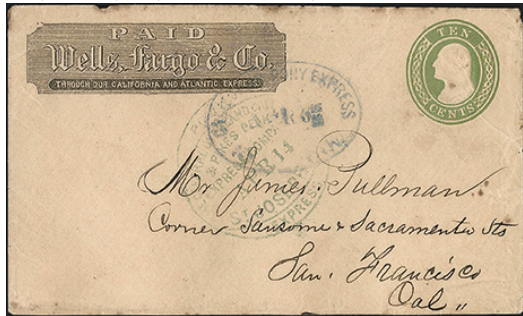 PAID
Wells, Fargo & Co.
THROUGH OUR CALIFORNIA AND ATLANTIC EXPRESS.
TEN
CENTS
PONY EXPRESS
& PIKES PEAK
EXPRESS
14
ST JOSEPH
Mr James. Pullman.
Corner Sansome & Sacramento Sts
San. Francisco
Cal "